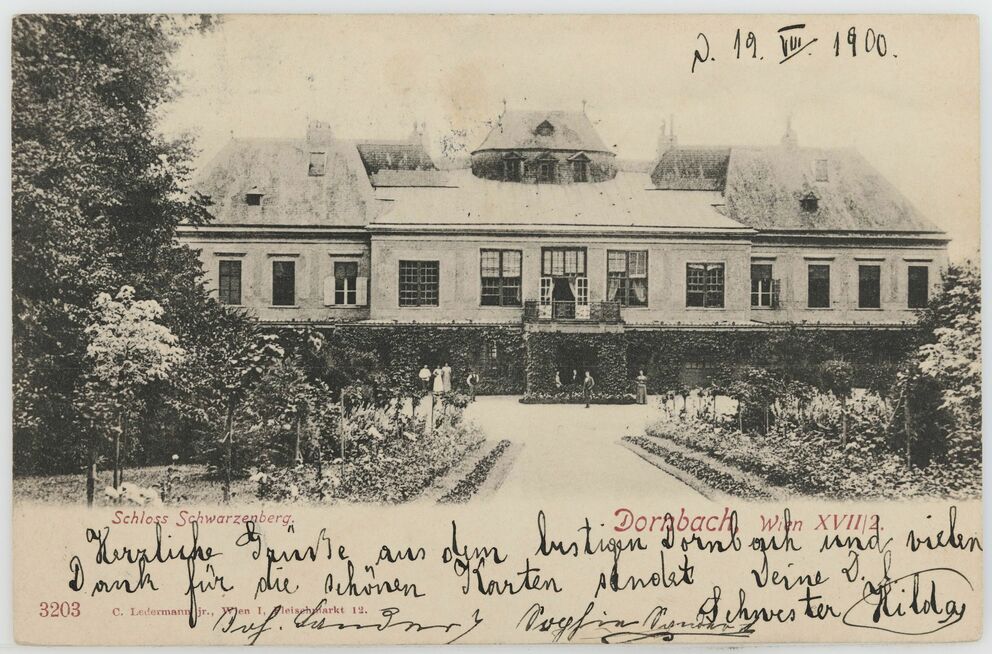 D. 19. VIII. 1900.
Schloss Schwarzenberg.
Dornbach, Wien XVII/2.
Herzliche Grüße aus dem lustigen Dornbach und vielen
Dank für die schönen Karten sendet Deine D. l.
Schwester Hilda
3203
C. Ledermann jr., Wien I, Fleischmarkt 12.
Joh. Sophie